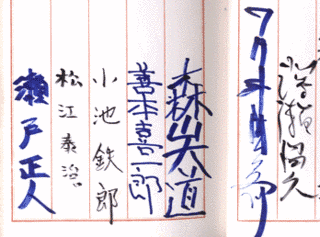 深瀬昌久
森山大道
善本喜一郎
小池鉄郎
松江泰治
瀬戸正人